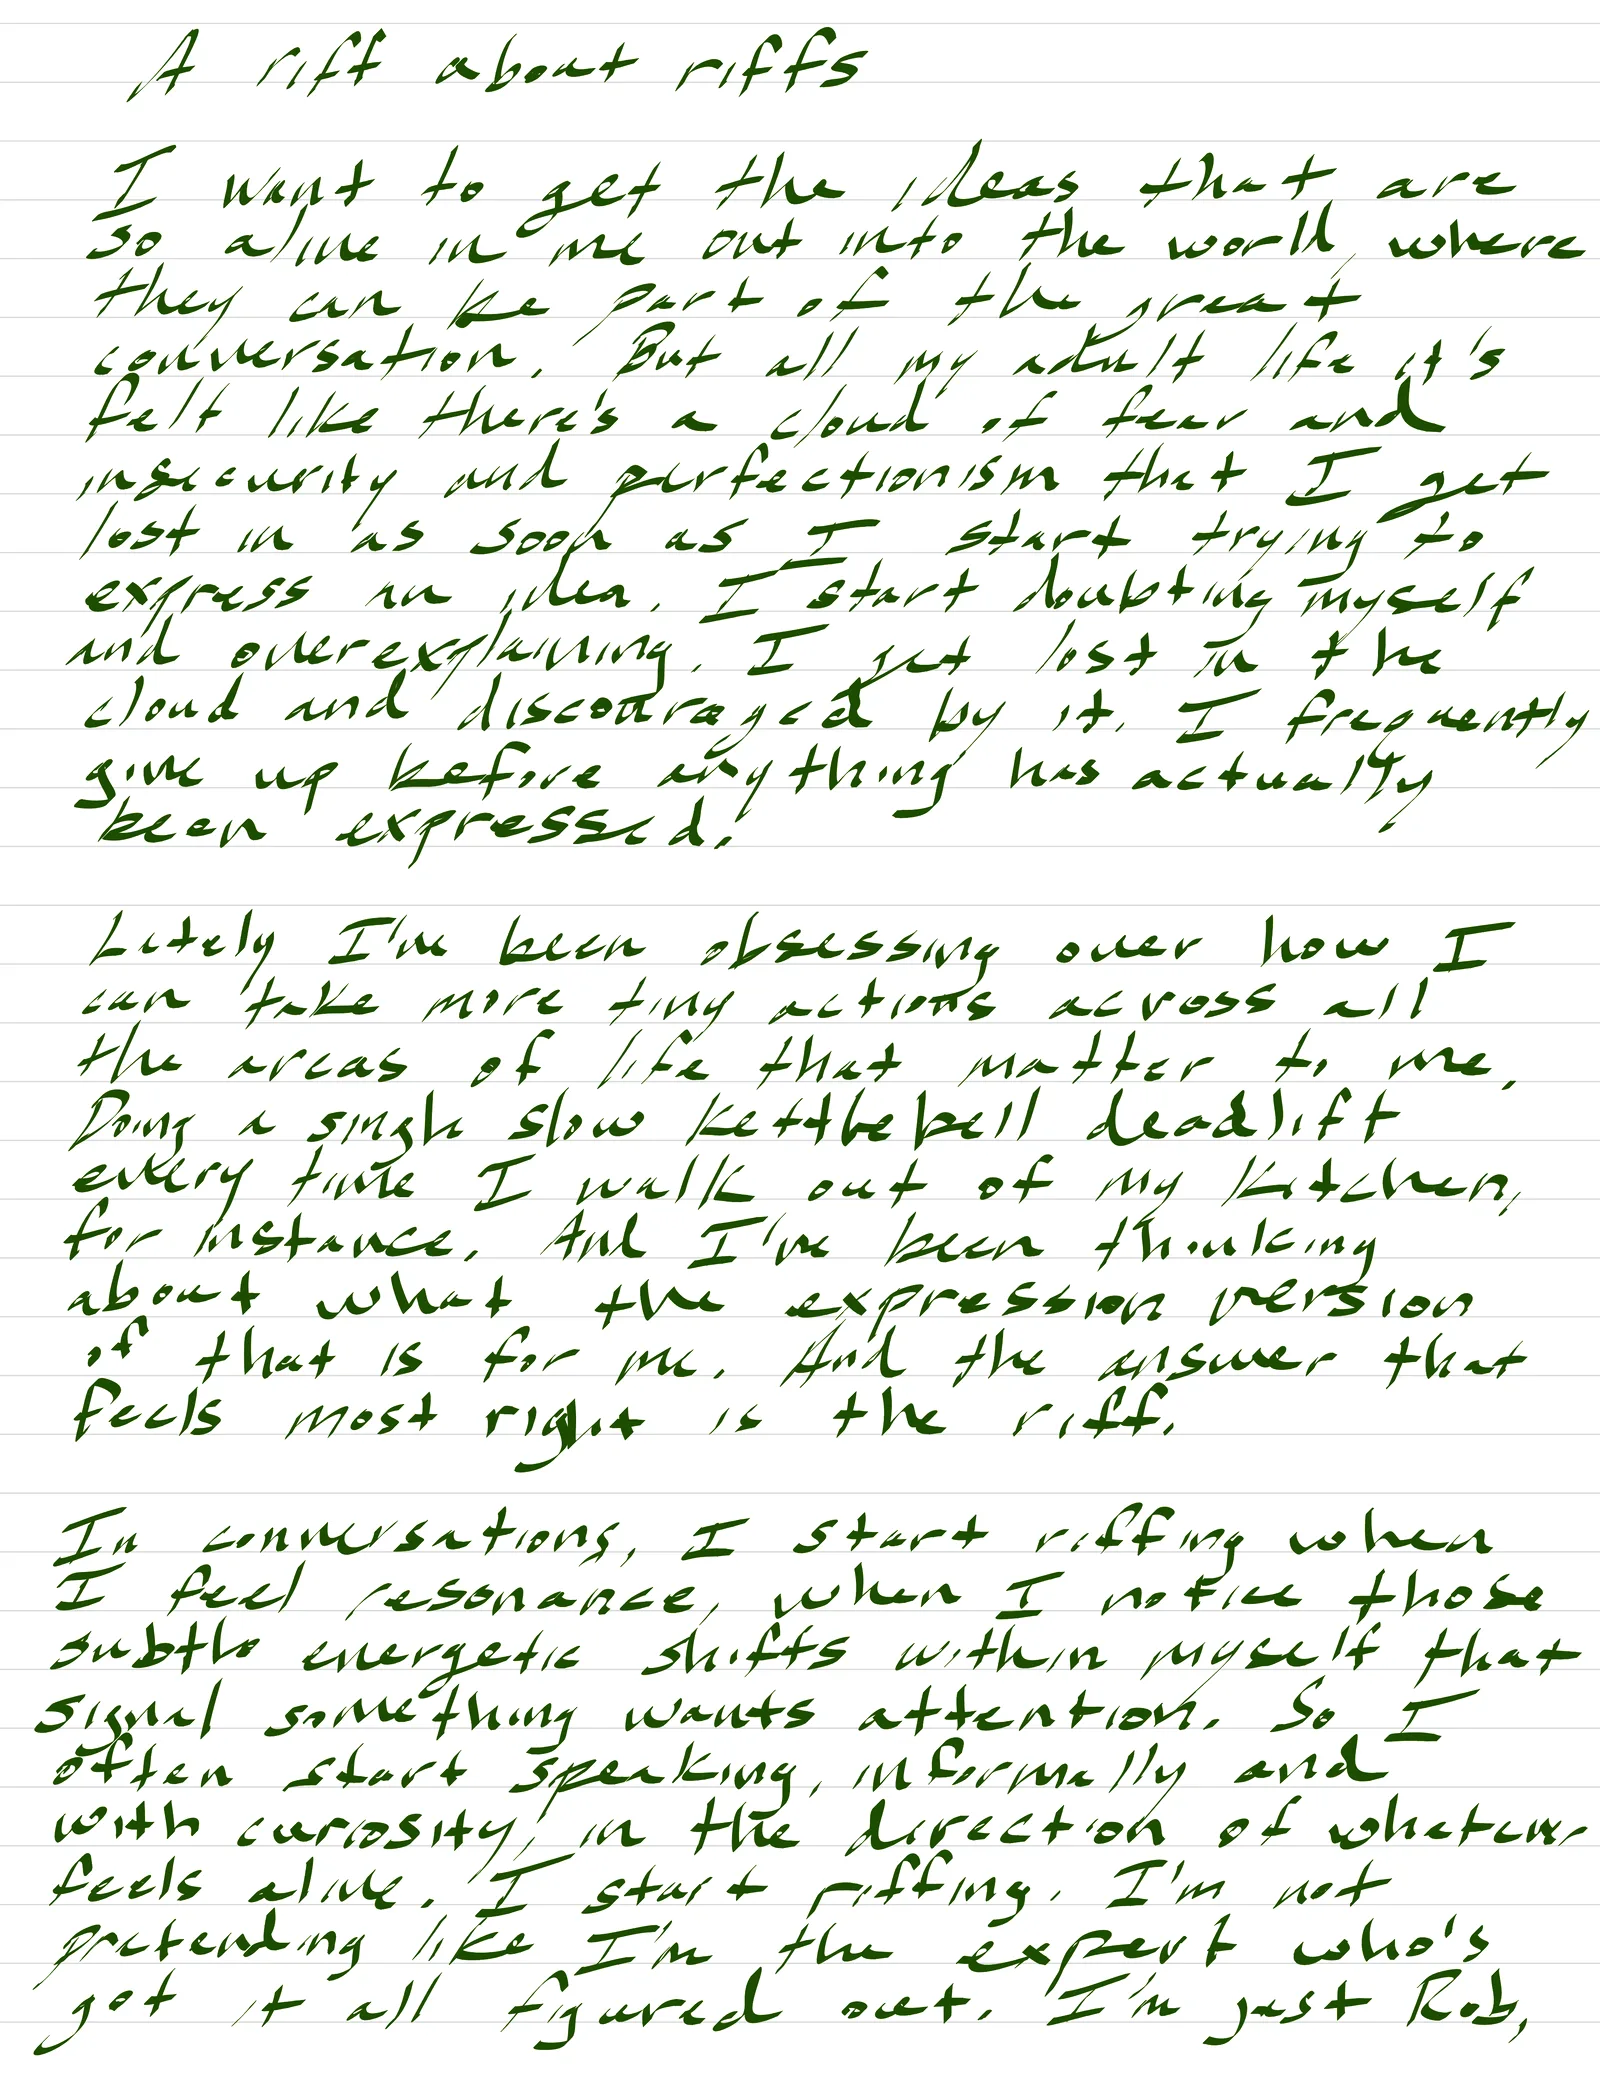 A riff about riffs
I want to get the ideas that are
so alive in me out into the world, where
they can be part of the great
conversation. But all my adult life it's
felt like there's a cloud of fear and
insecurity and perfectionism that I get
lost in as soon as I start trying to
express an idea. I start doubting myself
and overexplaining. I get lost in the
cloud and discouraged by it. I frequently
give up before anything has actually
been expressed.
Lately I've been obsessing over how I
can take more tiny actions across all
the areas of life that matter to me.
Doing a single slow kettlebell deadlift
every time I walk out of my kitchen,
for instance. And I've been thinking
about what the expression version
of that is for me. And the answer that
feels most right is the riff.
In conversations, I start riffing when
I feel resonance, when I notice those
subtle energetic shifts within myself that
signal something wants attention. So I
often start speaking, informally and
with curiosity, in the direction of whatever
feels alive. I start riffing. I'm not
pretending like I'm the expert who's
got it all figured out. I'm just Rob,